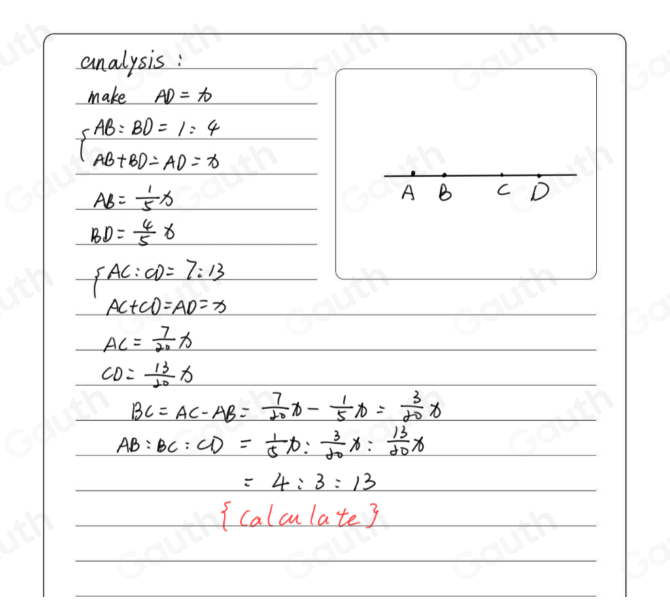 analysis :
make AD = x
{ AB : BD = 1 : 4
AB + BD = AD = x
AB = 1/5 x
BD = 4/5 x
{ AC : CD = 7 : 13
AC + CD = AD = x
AC = 7/20 x
CD = 13/20 x
BC = AC - AB = 7/20 x - 1/5 x = 3/20 x
AB : BC : CD = 1/5 x : 3/20 x : 13/20 x
= 4 : 3 : 13
{ calculate }
A B C D
Gauth